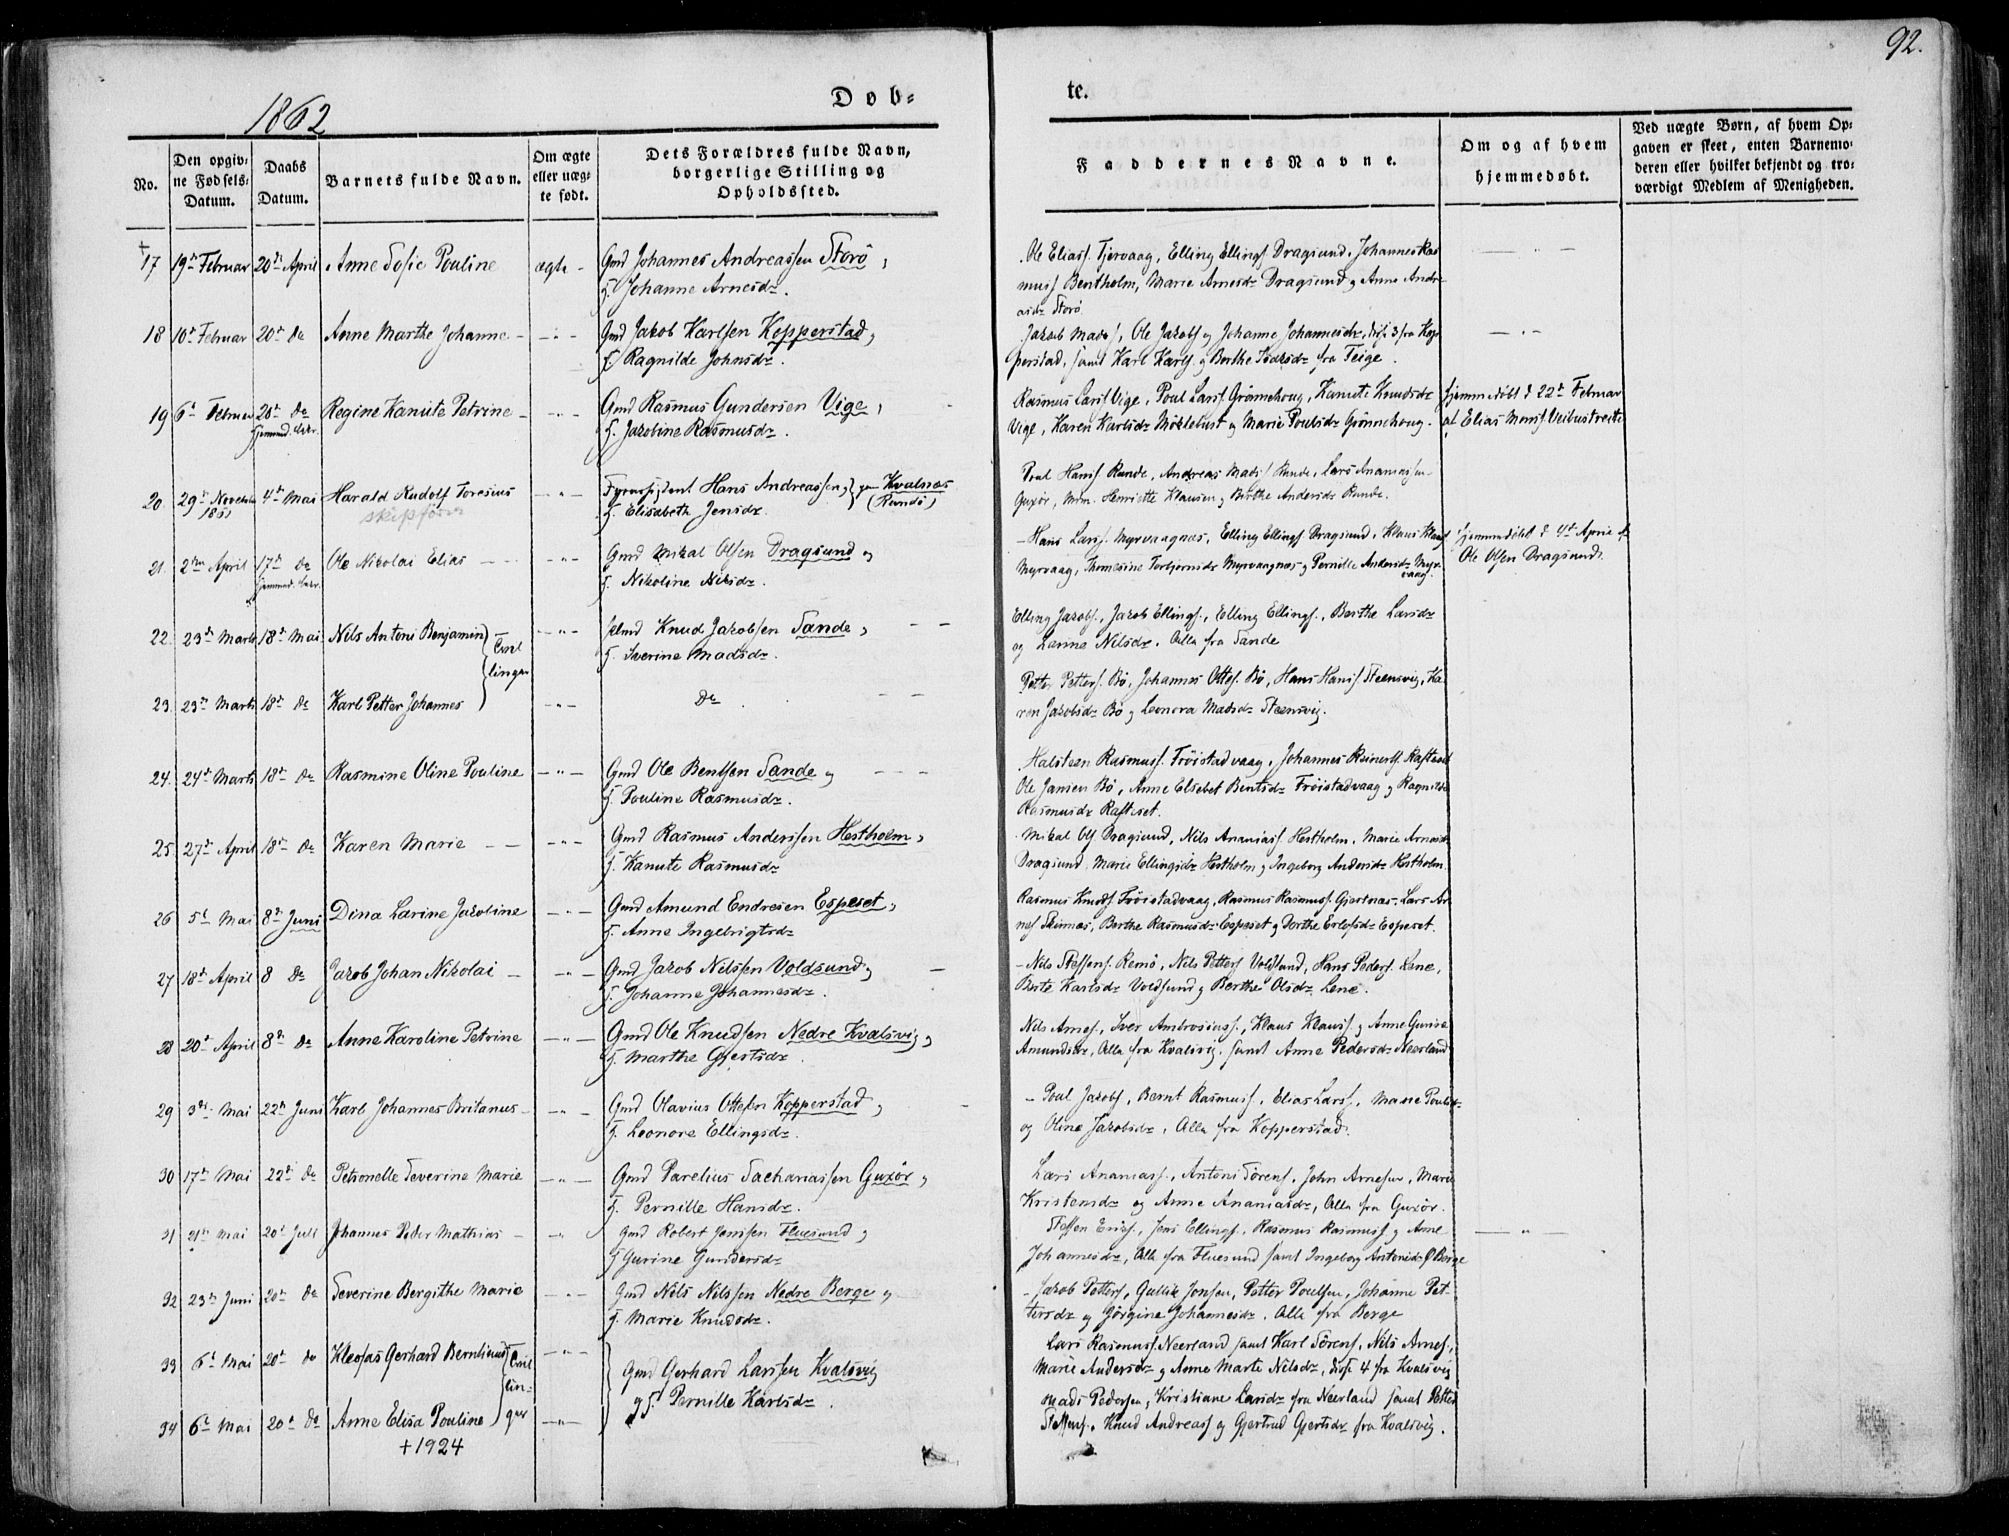 92.
1862
Døb=
te.
No.
Den opgiv=
ne Fødsels=
Datum.
Daabs
Datum.
Barnets fulde Navn.
Om ægte
eller uæg=
te født.
Dets Forældres fulde Navn,
borgerlige Stilling og
Opholdssted.
Faddernes Navne.
Om og af hvem
hjemmedøbt.
Ved uægte Børn, af hvem Op=
gaven er skeet, enten Barnemo=
deren eller hvilket bekjendt og tro=
værdigt Medlem af Menigheden.
17 19de Februar 20de April Anne Sofie Pouline ægte - Gmd Johannes Andreassen Storö,
H. Johanne Arnesdr.
Ole Eliass. Tjervaag, Elling Ellings. Dragsund, Johannes Ras
muss Bentholm, Marie Arnesdr Dragsund og Anne Andre
asdr Storö
18 10de Februar 20de do Anne Marthe Johanne - Gmd Jakob Karlsen Kopperstad,
H. Ragnilde Johnsdr.
Jakob Mads, Ole Jakobs og Johanne Johannesdr, disse 3 fra Kop
perstad, samt Karl Karls. og Berthe Isaksdr fra Teige.
19 6te Februar 20de do Regine Kanute Petrine - Gmd Rasmus Gundersen Vige,
Hjemmed. bekr.
H. Jakobine Rasmusdr.
Rasmus Larss Vige, Poul Larss Grönnehoug, Kanute Knudsdr
Vige, Karen Karlsdr Möklebust og Marie Poulsdr Grönnehoug.
Hjemmedöbt d 22de Februar
af Elias Monss Veibustreite
20. 29de November 4de Mai Harald Rudolf Toresius Fyrassistent Hans Andreassen, Kvalnæs
1861
skipsförer
H. Elisabeth Jensdr. (Rundö)
Poul Hanss Runde, Andreas Mads. Runde, Lars Ananiassen
Guxör, Mdm. Henriette Klausen og Berthe Andersdr Runde.
21. 2den April 17de do Ole Nikolai Elias Gmd Mikal Olsen Dragsund og
Hjemmed. bekr.
H. Nikoline Nilsdr.
Hans Larss. Myrvaagnæs, Elling Ellings Dragsund, Klaus Klauss
Myrvaag, Thomesine Torbjörnsdr Myrvaagnæs og Pernille Andersdr Myr-
vaag.
Hjemmedöbt d 4de April af
Ole Olsen Dragsund.
22. 23de Marts 18de Mai Nils Antoni Benjamin Tvil Knud Jakobsen Sande,
linger
H. Iverine Madsdr.
Elling Jakobs., Jakob Ellings., Elling Ellings., Berthe Larsdr
og Larine Nilsdr. Alle fra Sande
23. 23de Marts 18de do Karl Petter Johannes Do
Petter Petters. Bö, Johannes Ottes. Bö, Hans Hanss Steensvig, Ka
ren Jakobsdr Bö og Leonora Madsdr Steensvig.
24. 24de Marts 18de do Rasmine Oline Pouline Gmd Ole Bentsen Sande og
H. Pouline Rasmusdr.
Halsteen Rasmuss. Fröistadvaag, Johannes Reinerts. Raftset
Ole Jansen Bö, Anne Elsebet Bentsdr Fröistadvaag og Ragnilde
Rasmusdr Raftset.
25. 27de April 18de do Karen Marie Gmd Rasmus Anderssen Hestholm,
H. Kanute Rasmusdr
Mikal Ols Dragsund, Nils Ananiass Hestholm, Marie Arnesdr
Dragsund, Marie Ellingsdr Hestholm og Ingeborg Andersdr Hestholm.
26 5te Mai 8de Juni Dina Larine Jakobine Gmd Amund Endresen Espeset,
H. Anne Ingebrigtsdr
Rasmus Knuds Fröistadvaag, Rasmus Rasmuss. Gjertnæs, Lars Ar
nes Skinnæs, Berthe Rasmusdr Espeset og Dorthe Erlofsdr Espeset.
27 18de April 8 do Jakob Johan Nikolai Gmd Jakob Nilssen Voldsund,
H. Johanne Johannesdr.
Nils Steffens. Remö, Nils Petters Voldsund, Hans Peders. Lene,
Berte Karlsdr Voldsund og Berthe Olsdr Lene.
28 20de April 8de do Anne Karoline Petrine Gmd Ole Knudsen Nedre Kvalsvig,
H. Marthe Gjertsdr.
Nils Arnes., Iver Ambrosiuss., Klaus Klauss. og Anne Gurine
Amundsdr, Alle fra Kvalsvig, samt Anne Pedersdr Neerland
29 3de Mai 22de Juni Karl Johannes Britanus Gmd Olavius Ottesen Kopperstad,
H. Leonore Ellingsdr.
Poul Jakobs, Bernt Rasmuss., Elias Larss., Marie Poulsdr
og Oline Jakobsdr, Alle fra Kopperstad.
30 17de Mai 22de do Petronelle Severine Marie Gmd Parelius Sachariassen Guxör,
H. Pernille Hansdr.
Lars Ananiass., Antoni Sörens., John Arnesen, Marie
Kristensdr og Anne Ananiasdr, Alle fra Guxör.
31 21de Mai 20de Juli Johannes Peder Mathias Gmd Robert Jonssen Fluesund,
H Gurine Gundersdr
Steffen Eriks., Jens Ellings., Rasmus Rasmuss og Anne
Johannesdr, Alle fra Fluesund samt Ingeborg Antonidr Ö Berge
32 23de Juni 20de do Severine Bergithe Marie Gmd Nils Nilssen Nedre Berge,
H. Marie Knudsdr.
Jakob Petters, Gullik Jonsen, Petter Poulsen, Johanne Pet-
tersdr og Jörgine Johannesdr. Alle fra Berge
33 6te Mai 20de do Kleofas Gerhard Berntinus Tvil
lin-
ger
Gmd Gerhard Larssen Kvalsvig
og H. Pernille Karlsdr.
Lars Rasmuss. Neerland samt Karl Sörens, Nils Arnes.,
Marie Andersdr og Anne Marte Nilsdr, disse 4 fra Kvalsvig
34 6te Mai 20de do Anne Elisa Pouline
+ 1924
Mads Pedersen, Kristiane Larsdr fra Neerland samt Petter
Steffens., Knud Andreass og Gjertrud Gjertsdr fra Kvalsvig.